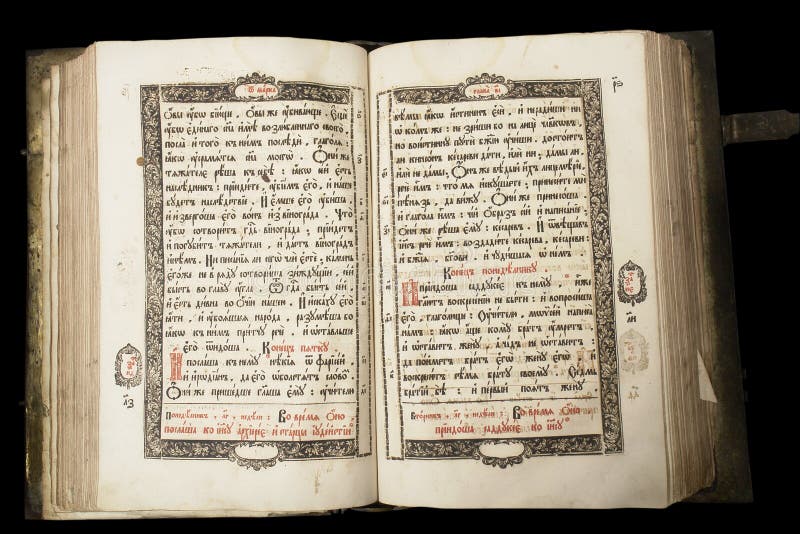 ѿ марка
ѻвы ᲂу҆бо бїюще, ѻвы же ᲂу҆бивающе. Е҆щѐ
ᲂу҆бо единаго сн҃а и҆мѣ̀ возлюбленнаго своего̀
посла̀ и҆ того̀ къ ни́мъ послѣди, глаго́лѧ:
ꙗ҆́кѡ ᲂу҆срамлѧ́тсѧ сн҃а моегѡ̀. Ѻ҆ни́ же
тѧжателе рѣ́ша къ себѣ̀: ꙗ҆́кѡ се́й є҆́сть
наслѣдникъ: прїиди́те, ᲂу҆бїемъ є҆го̀, и҆ наше
бу́детъ наслѣдствїе. И҆ є҆́мше є҆го̀ ᲂу҆би́ша,
и҆ и҆звергоша є҆го̀ во́нъ и҆з̾ винограда. Что̀
ᲂу҆бо сотвори́тъ гдⷭ҇ь винограда; прїи́детъ
и҆ погуби́тъ тѧжатели, и҆ да́стъ виногра́дъ
и҆нѣ́мъ. Ни писанїѧ ли сегѡ̀ чли є҆стѐ, ка́мень
є҆го́же не в рѧду̀ сотвори́ша зи́ждущїи, се́й
бы́сть во главу̀ ᲂу҆́гла. Ѿ гдⷭ҇а бы́сть се́й,
и҆ є҆́сть ди́вна во ѻ҆́чїю нашею. И҆ и҆ска́ху є҆го̀
ꙗ҆́ти, и҆ ᲂу҆боѧ́шасѧ народа. разумѣ́ша бо
ꙗ҆́кѡ к ни́мъ при́тчу речѐ, и҆ ѡ҆ста́вльше
є҆го̀ ѿидо́ша. Коне́цъ пѧтку̀
И҆ посла́ша къ нему̀ нѣ́кїѧ ѿ фарїсе́й
и҆ и҆рѡдїа́нъ, да є҆го̀ ѡ҆больстѧ́тъ сло́вомъ.
Ѻ҆ни́ же прише́дше глаго́лаша є҆му̀: ᲂу҆чи́телю
л҃з
Понедѣ́льникъ, л҃г недѣ́ли: Во вре́мѧ ѻ҆́но
посла́ша ко і҆и҃су а҆рхїере́є и҆ ста́рцы і҆удейстїи
вѣ́мы ꙗ҆́кѡ и҆́стиненъ є҆сѝ, и҆ неради́ши
ѡ҆ ко́мъ же: не зри́ши бо на лицѐ человѣ́кѡмъ
но вои́стинну путѝ бж҃їю ᲂу҆чи́ши: досто́итъ
ли кинсо́нъ ке́сареви да́ти, и҆лѝ нѝ; да́мы ли
и҆лѝ не да́мы; Ѻ҆́нъ же вѣ́дый и҆́хъ лицемѣ́рїе,
речѐ и҆̀мъ: что́ мѧ и҆скуша́ете; принеси́те мѝ
пѣ́нѧзь да ви́жу. Ѻ҆ни́ же принесо́ша,
и҆ глаго́ла и҆̀мъ: чі́й ѡ҆́бразъ се́й и҆ написа́нїе;
Ѻ҆ни́ же рѣ́ша є҆му̀: ке́саревъ. И҆ ѿвѣща́въ
і҆и҃съ речѐ и҆̀мъ: воздади́те ке́сарева, ке́сареви:
и҆ бж҃їѧ бг҃ови: и҆ чуди́шасѧ ѡ҆ не́мъ.
Коне́цъ понедѣ́лнику
И҆ прїидо́ша саддуке́є къ нему̀ и҆̀же
глаго́лютъ воскресе́нїю не бы́ти: и҆ вопроси́ша
є҆го̀, глаго́люще: Оу҆чи́телю, мѡѷсе́й написа̀
на́мъ: ꙗ҆́кѡ а҆́ще кому̀ бра́тъ ᲂу҆́мретъ
и҆ ѡ҆ста́витъ жену̀, а҆ ча́дъ не ѡ҆ста́витъ
да по́йметъ бра́тъ є҆гѡ̀ жену̀ є҆гѡ̀ и҆
воскреси́тъ сѣ́мѧ бра́ту своему̀. Се́дмь
бра́тїй бѣ̀: и҆ пе́рвый поѧ́тъ жену̀
л҃и
Вто́рникъ, л҃г недѣ́ли: Во вре́мѧ ѻ҆́но
прїидо́ша саддуке́є ко і҆и҃су